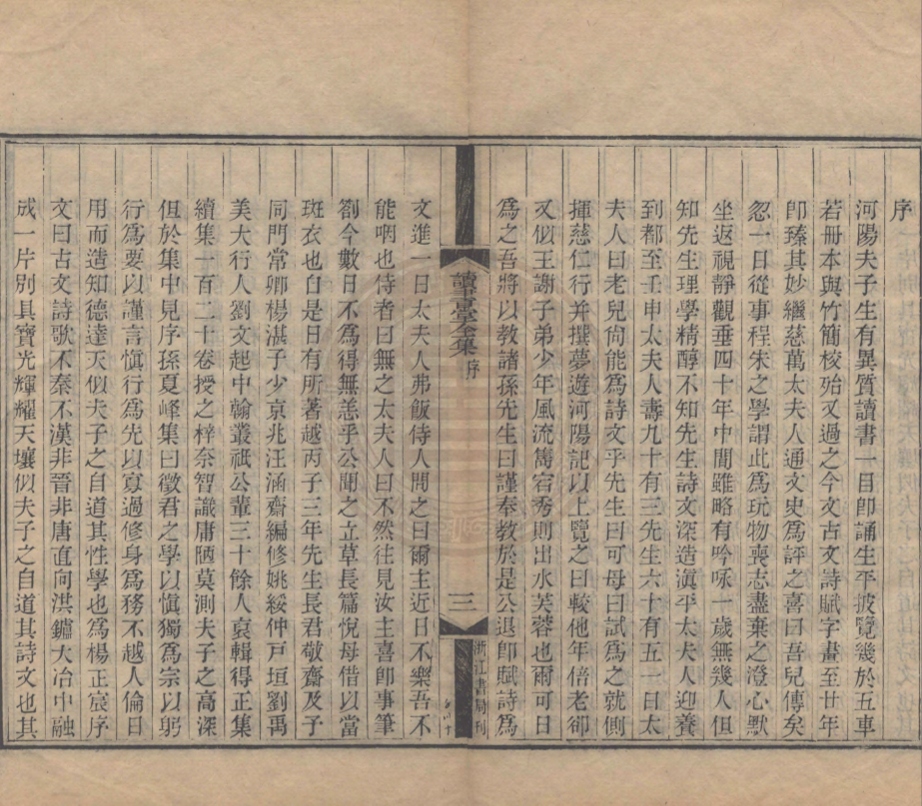 序
河陽夫子生有異質讀書一目卽誦生平披覽幾於五車
若冊本與竹簡校殆又過之今文古文詩賦字畫至廿年
卽臻其妙繼慈萬太夫人通文史爲評之喜曰吾兒傳矣
忽一日從事程朱之學謂此爲玩物喪志盡棄之澄心默
坐返視靜觀垂四十年中間雖略有吟咏一歲無幾人但
知先生理學精醇不知先生詩文深造滇平太夫人迎養
到都至壬申太夫人壽九十有三先生六十有五一日太
夫人曰老兒尙能爲詩文乎先生曰可母曰試爲之就側
揮慈仁行并撰夢遊河陽記以上覽之曰較他年倍老卻
又似王謝子弟少年風流雋宕秀則出水芙蓉也爾可日
爲之吾將以敎諸孫先生曰謹奉敎於是公退卽賦詩爲
讀書臺全集
序
三
浙江書局刊
文進一日太夫人弗飯侍人問之曰爾主近日不樂吾不
能咽也侍者曰無之太夫人曰不然往見汝主喜卽事筆
劄今數日不爲得無恙乎公聞之立草長篇悅母借以當
斑衣也自是日有所著越丙子三年先生長君敬齋及子
同門常卿楊湛子少京兆汪涵齋編修姚綏仲戸垣劉禹
美大行人劉文起中翰叢祗公輩三十餘人裒輯得正集
續集一百二十卷授之梓奈智識庸陋莫測夫子之高深
但於集中見序孫夏峰集曰徵君之學以愼獨爲宗以躬
行爲要以謹言愼行爲先以寡過修身爲務不越人倫日
用而造知德達天似夫子之自道其性學也爲楊正宸序
文曰古文詩歌不秦不漢非晉非唐直向洪鑪大冶中融
成一片別具寶光輝耀天壤似夫子之自道其詩文也其